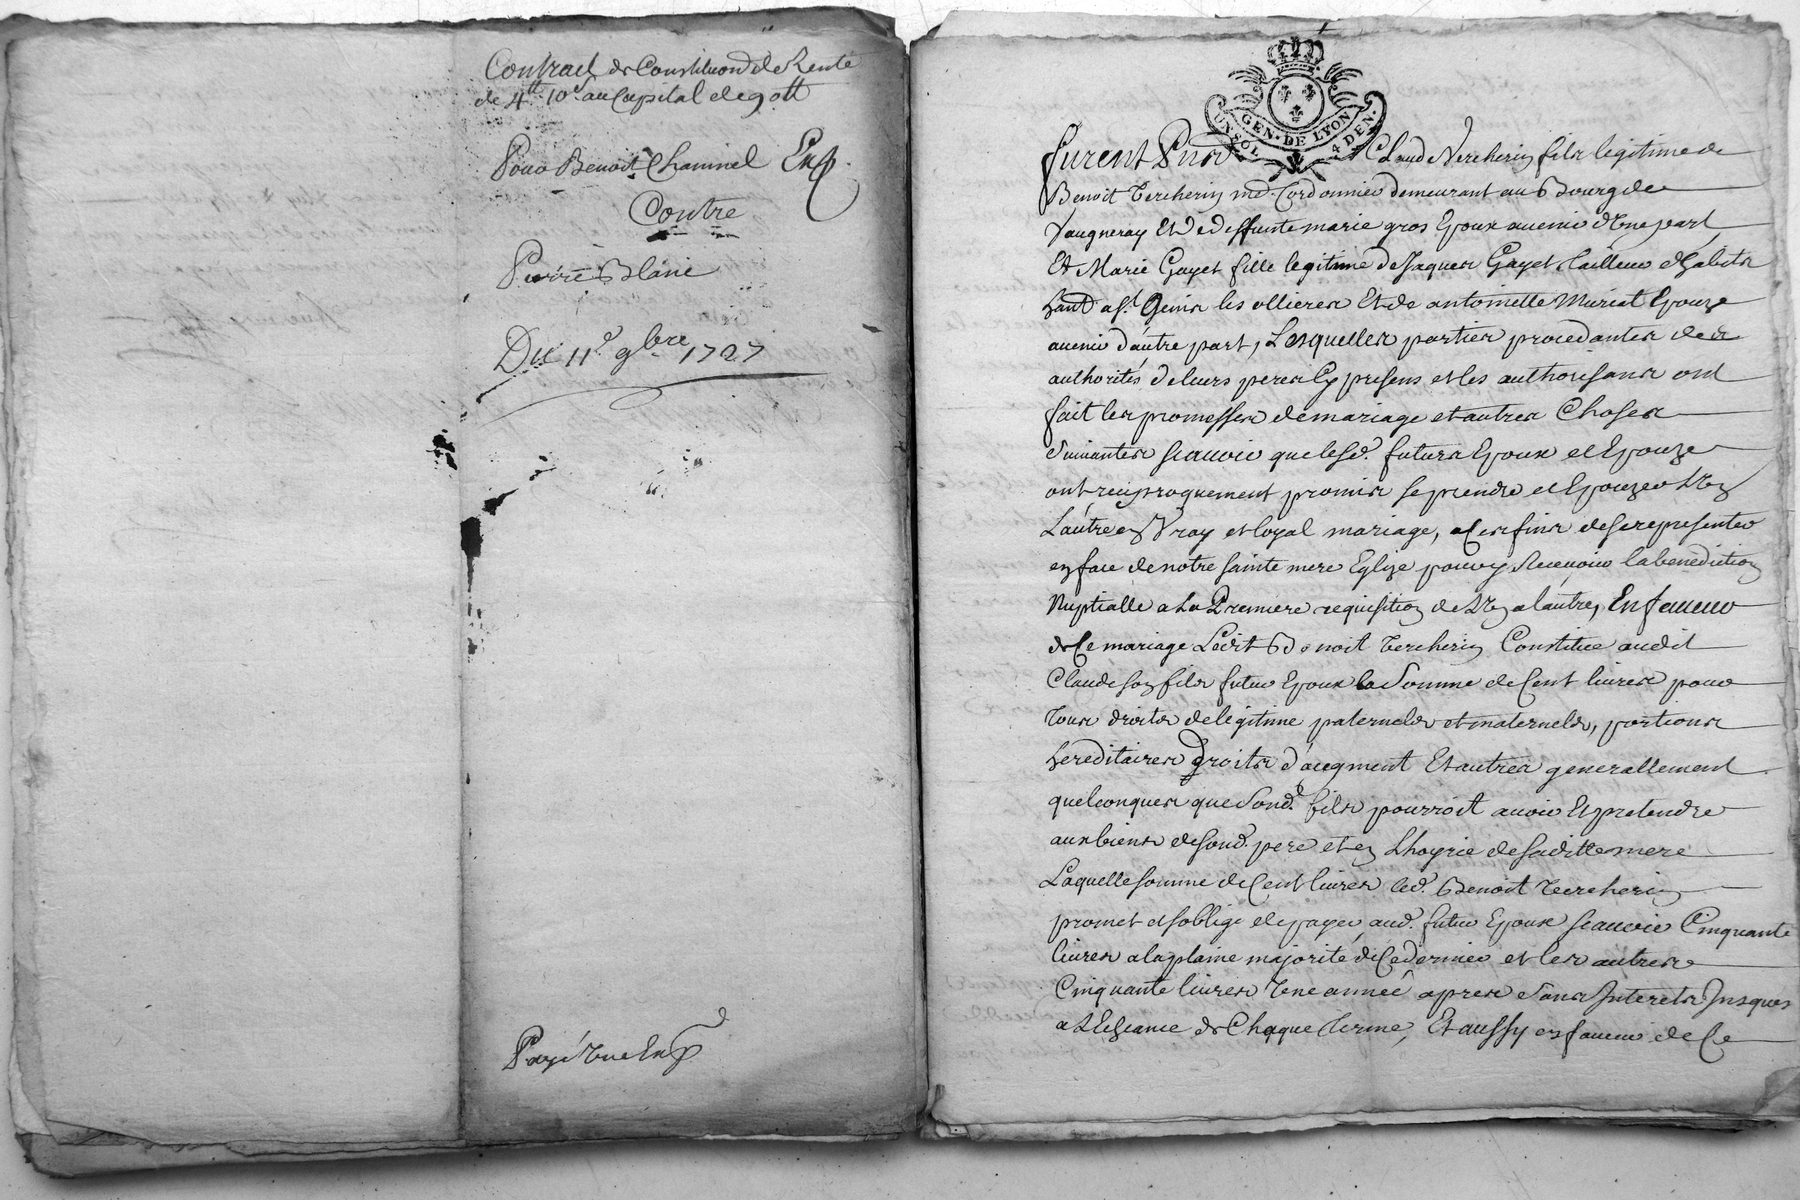 Contract de Constitution de Rente
de 4tt 10s au Capital de 90tt
Pour Benoit Chaninel Exp.
Contre
Pierre Blanc
Du 11e 9bre 1727
Payé une Exp
UN SOL GEN · DE LYON 4 DEN ·
furent pnts Claude Tercherin fils legitime de
Benoit Tercherin md. Cordonnier demeurant au Bourg de
Vaugneray Et de deffunte marie gros Epoux avenir d'Une part
Et Marie Gayet fille legitime de Jaques Gayet tailleur d'habits
hant a st. Genis les ollieres Et de antoinette Muriat Epouze
avenir d'autre part, Lesquelles parties procedantes de
authorités de leurs peres Cy presens et les authorisans ont
fait les promesses de mariage et autres Choses
Suivantes scavoir que lesd. futurs Epoux et Epouze
ont reciproquement promis se prendre et Epouzer Un
L'autre en Vray et loyal mariage, a Ces fins de se representer
en face de notre sainte mere Eglize pour y Recevoir la benediction
Nuptialle a La Premiere requisition de Un a l'autre, En faveur
de Ce mariage Ledit Benoit Tercherin Constitue audit
Claude son fils futur Epoux la Somme de Cent livres pour
Tous droits de legitime paternels et maternels, portions
hereditaires Droits d'augment Et autres generallement
quelconques que Sond. fils pourroit avoir Et pretendre
aux biens de sond. pere et en L'hoyrie de saditte mere
Laquelle somme de Cent livres led. Benoit Tercherin
promet et s'oblige de payer aud. futur Epoux scavoir Cinquante
livres a la plaine majorité de Ce dernier et les autres
Cinquante livres Une année apres Sans Interets Jusques
a L'Echeance de Chaque terme, Et aussy en faveur de Ce